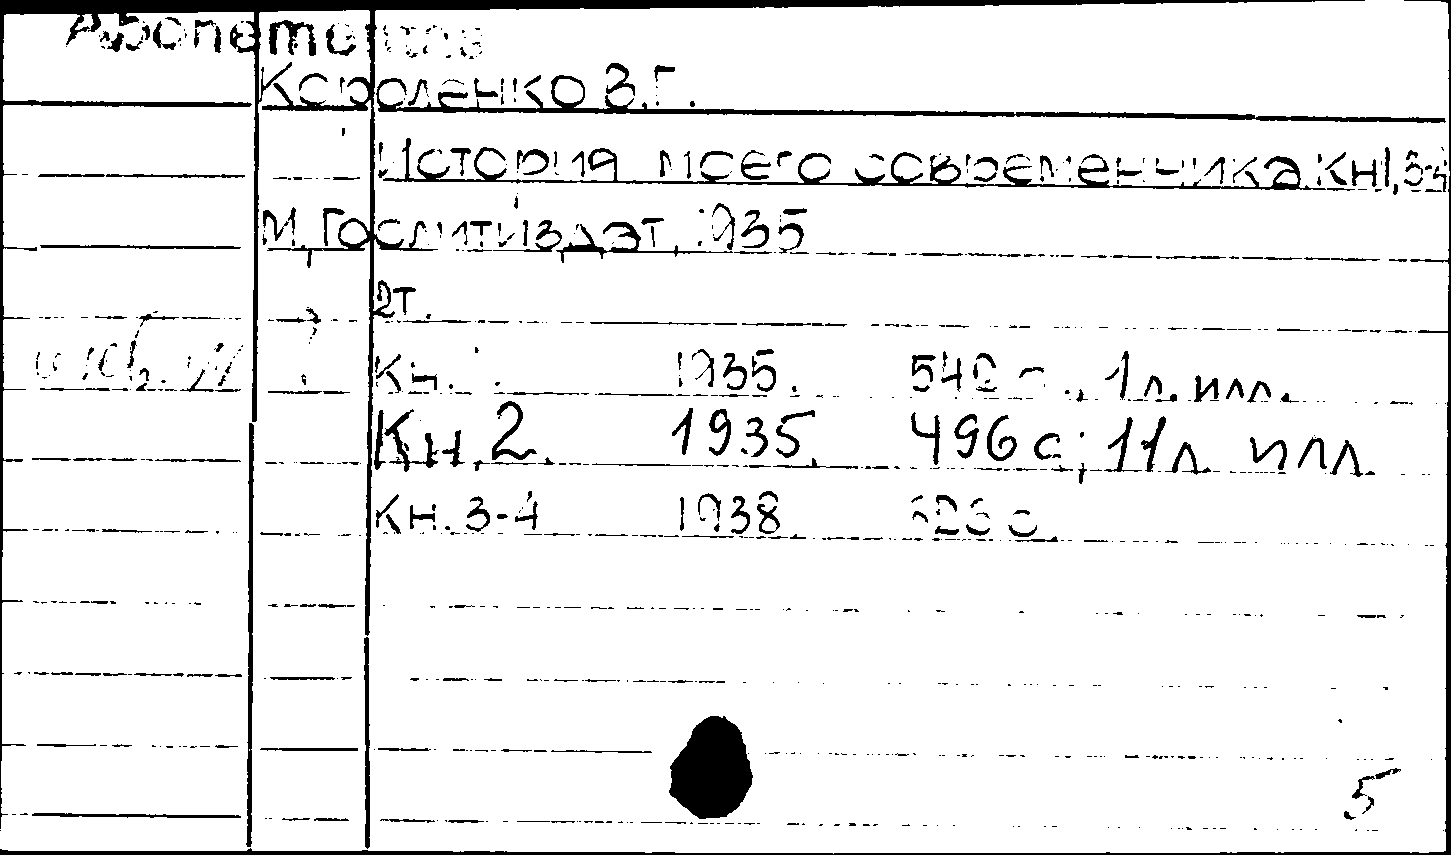 Короленко В.Г.
История моего современника. Кн1,3-4
М. Гослитиздат, 1935
2т.
Кн. 1935. 1л. илл.
Кн. 2. 1935. 496 с; 11л илл
Кн. 3-4 1938.
5